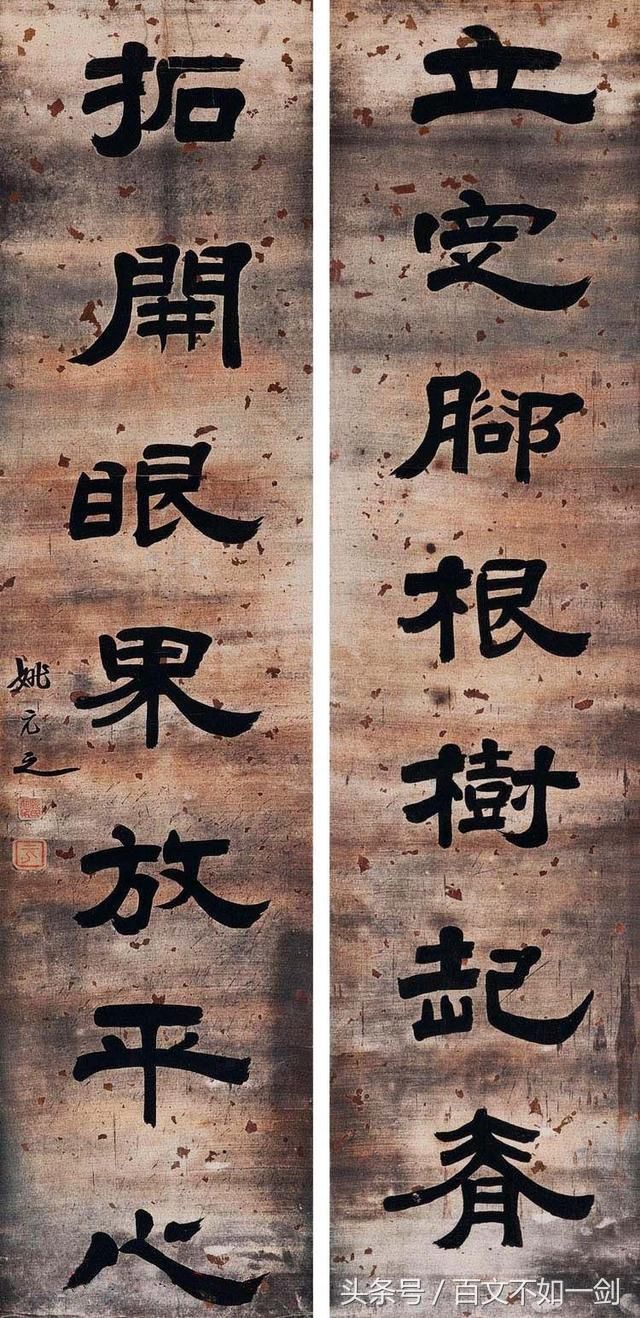 立定腳根樹起脊
拓開眼界放平心
姚元之
头条号 / 百文不如一剑